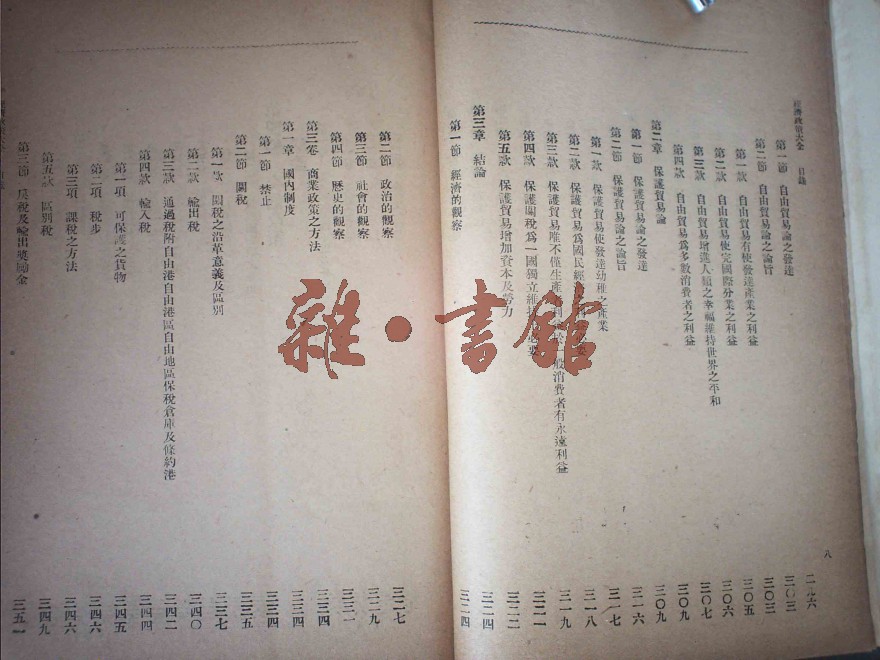 經濟政策大全 目錄
第一節 自由貿易論之發達 二九六
第二節 自由貿易論之論旨 三〇三
第一款 自由貿易有使發達產業之利益 三〇五
第二款 自由貿易使定國際分業之利益 三〇六
第三款 自由貿易增進人類之幸福維持世界之平和 三〇七
第四款 自由貿易為多數消費者之利益 三〇九
第二章 保護貿易論 三〇九
第一節 保護貿易論之發達 三一六
第二節 保護貿易論之論旨 三一七
第一款 保護貿易使發達幼稚之產業 三一八
第二款 保護貿易為國民經 三一九
第三款 保護貿易唯不僅生產者 般消費者有永遠利益 三二一
第四款 保護關稅為一國獨立維持 必要 三二二
第五款 保護貿易增加資本及勞力 三二二
第三章 結論 三二四
第一節 經濟的觀察 三二四
八
第二節 政治的觀察 三二七
第三節 社會的觀察 三二九
第四節 歷史的觀察 三三一
第三卷 商業政策之方法 三三四
第一章 國內制度 三三四
第一節 禁止 三三四
第二節 關稅 三三五
第一款 關稅之沿革意義及區別 三三七
第二款 輸出稅 三四〇
第三款 通過稅附自由港自由港區自由地區保稅倉庫及條約港 三四二
第四款 輸入稅 三四四
第一項 可保護之貨物 三四五
第二項 稅步 三四六
第三項 課稅之方法 三四六
第五款 區別稅 三四九
第三節 戾稅及輸出獎勵金 三五一
雜·書館